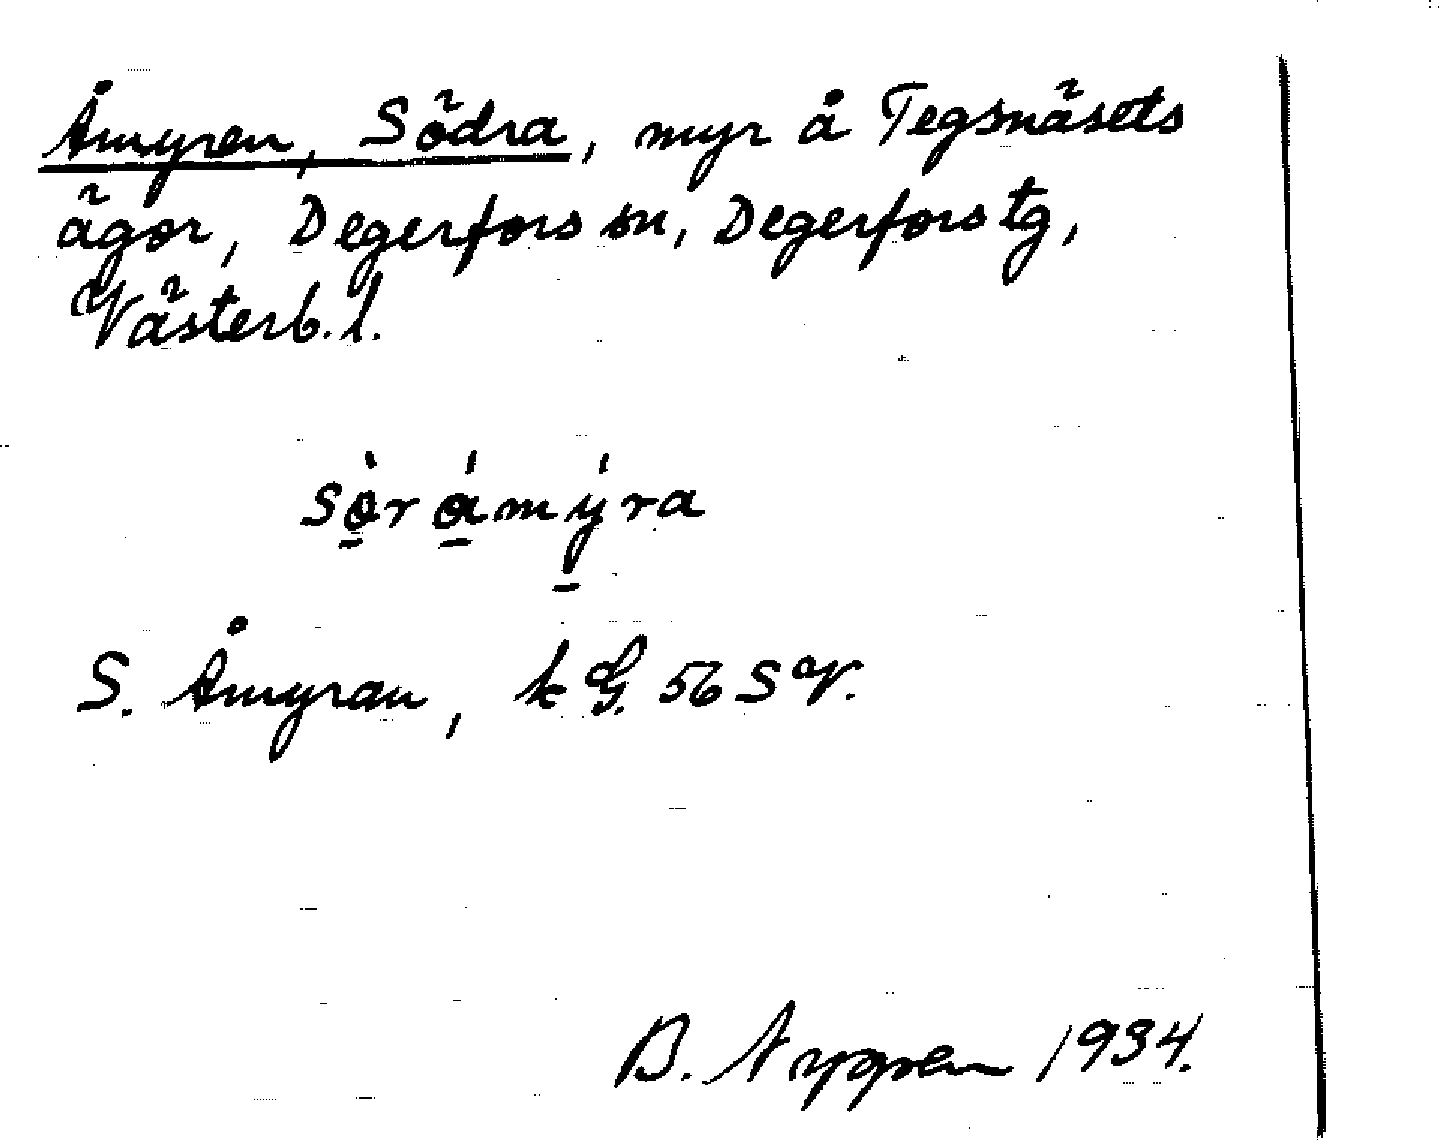 Åmyren, Södra, myr å Tegsnäsets
ägor, Degerfors sn, Degerfors tg,
Västerb. l.
S. Åmyran, k G. 56 SV.
B. Nyggren 1934.